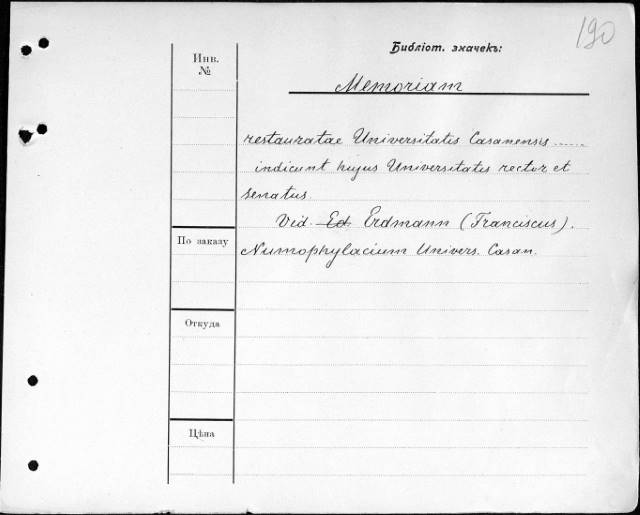 190
Библіот. значекъ:
Инв.
№
Memoriam
restauratae Universitatis Casanensis ......
indicunt hujus Universitatis rector et
senatus.
Vid. Ed. Erdmann (Franciscus).
По заказу
Numophylacium Univers. Casan.
Откуда
Цѣна